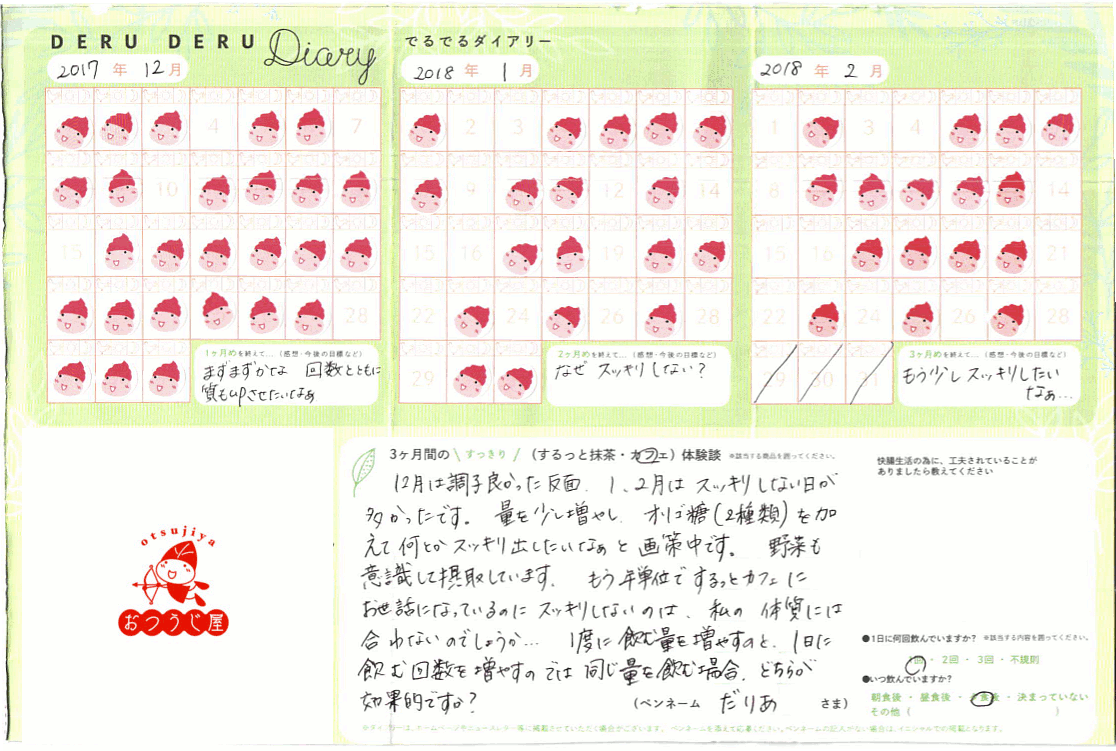 DERU DERU Diary でるでるダイアリー
2017年 12月
2018年 1月
2018年 2月
4 7
2 3
1 3 4 7
10
9 12 14
8 14
15
15 16 19 21
15 16 21
28
22 24 25 27 28
22 24 25 27 28
29
29 30 31
1ヶ月めを終えて…（感想・今後の目標など）
まずまずかな 回数とともに
質もupさせたいなぁ
2ヶ月めを終えて…（感想・今後の目標など）
なぜ スッキリしない？
3ヶ月めを終えて…（感想・今後の目標など）
もう少しスッキリしたい
なぁ…
3ヶ月間の\すっきり/（するっと抹茶・カフェ）体験談 ※該当する商品を囲ってください。
12月は調子良かった反面、1、2月はスッキリしない日が
多かったです。量を少し増やし、オリゴ糖（2種類）を加
えて何とかスッキリ出したいなぁと画策中です。野菜も
意識して摂取しています。もう年単位でするっとカフェに
お世話になっているのにスッキリしないのは、私の体質には
合わないのでしょうか… 1度に飲む量を増やすのと、1日に
飲む回数を増やすのでは同じ量を飲む場合、どちらが
効果的ですか？
（ペンネーム だりあ さま）
※ダイアリーは、ホームページやニュースレター等に掲載させていただく場合がございます。ペンネームを添えて応募ください。ペンネームの記入がない場合は、イニシャルでの掲載となります。
快腸生活の為に、工夫されていることが
ありましたら教えてください
●1日に何回飲んでいますか？ ※該当する内容を囲ってください。
1回・2回・3回・不規則
●いつ飲んでいますか？
朝食後・昼食後・夕食後・決まっていない
その他（ ）
otsujiya
おつうじ屋